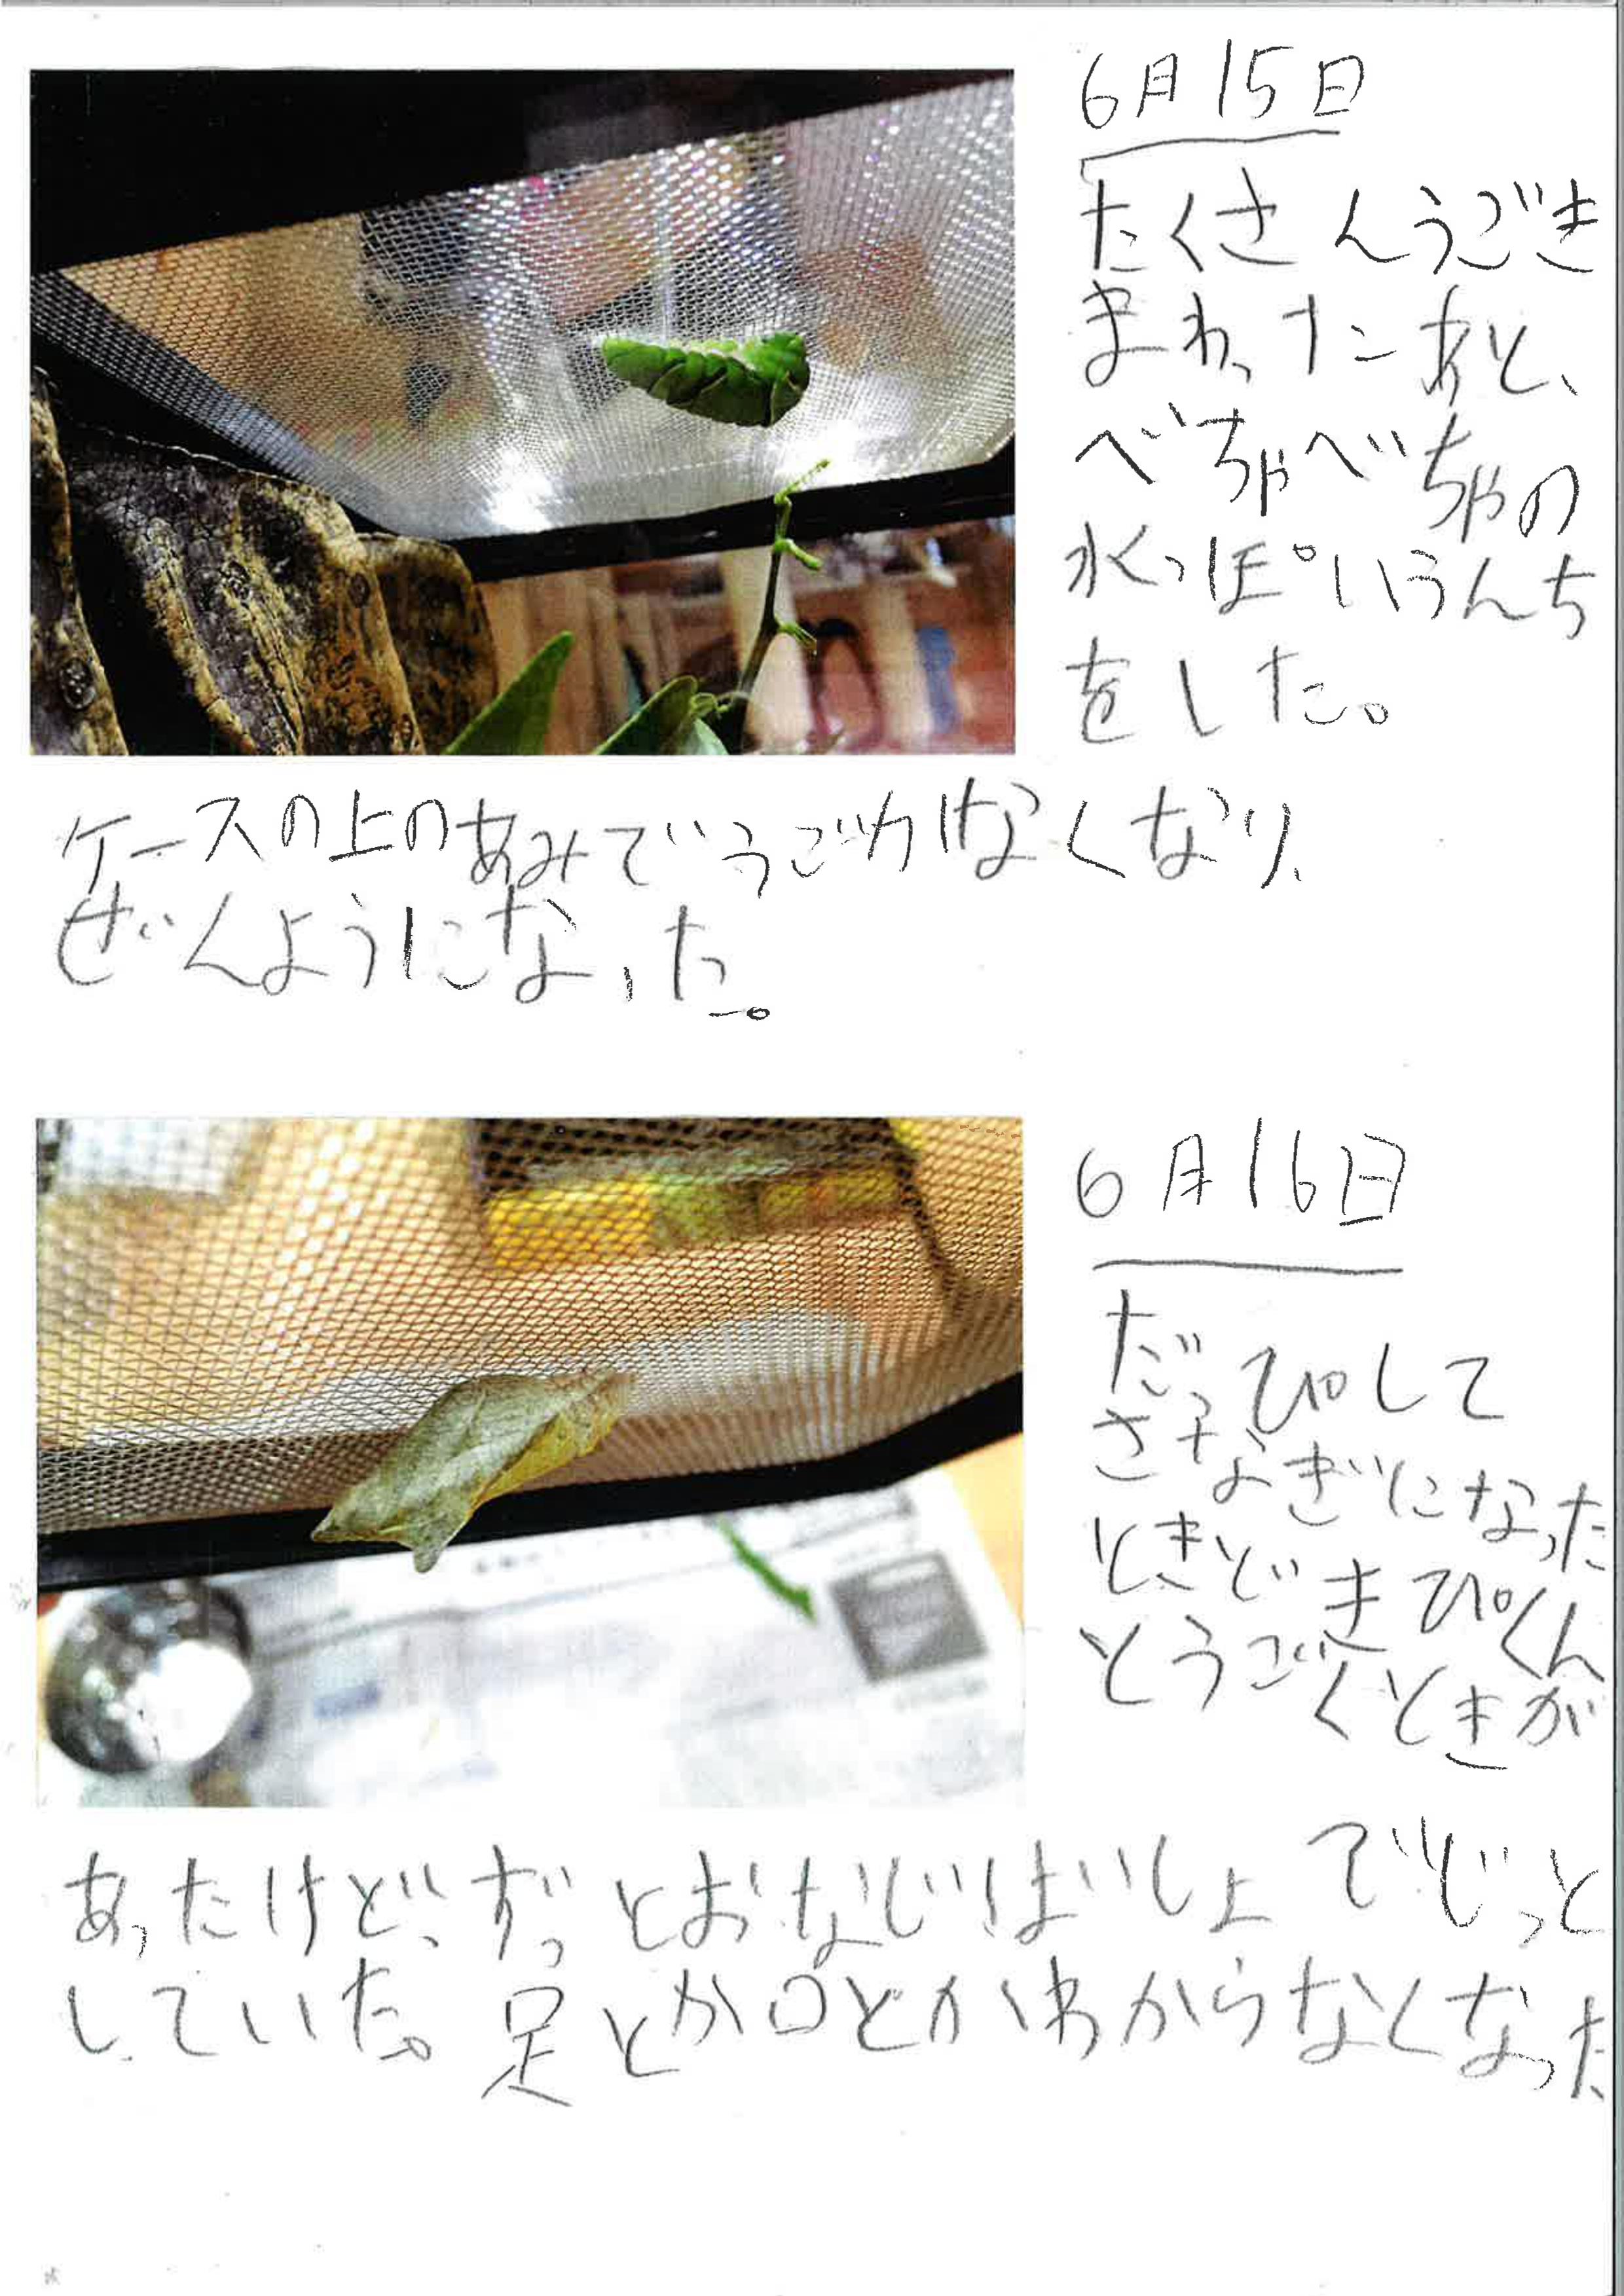 6月15日
たくさんうごき
まわったあと、
べちゃべちゃの
水っぽいうんち
をした。
ケースの上のあみでうごかなくなり、
ぜんようになった。
6月16日
だっぴして
さなぎになった
ときどきぴくん
とうごくときが
あったけど、ずっとおなじばしょでじっと
していた。足とか口とかわからなくなった